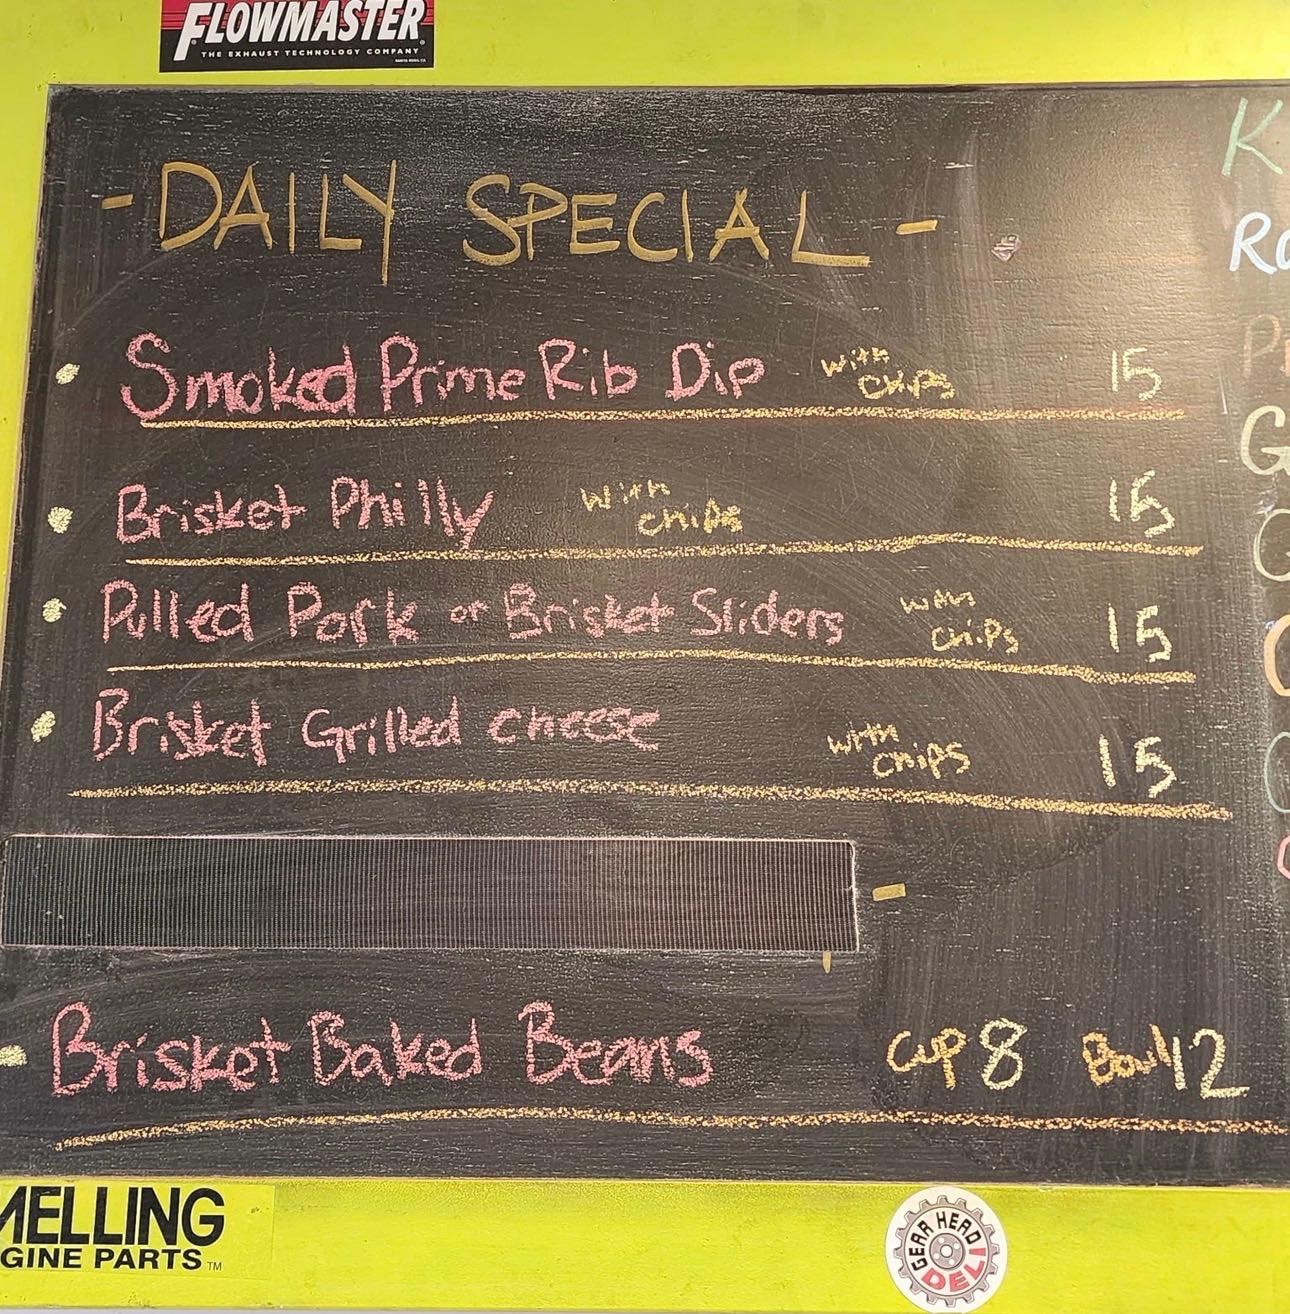 FLOWMASTER
THE EXHAUST TECHNOLOGY COMPANY
- DAILY SPECIAL -
Smoked Prime Rib Dip with chips 15
Brisket Philly with chips 15
Pulled Pork or Brisket Sliders with chips 15
Brisket Grilled cheese with chips 15
Brisket Baked Beans Cup 8 Bowl 12
K
Ro
Pr
G
MELLING
GINE PARTS™
GEAR HEAD
DELI